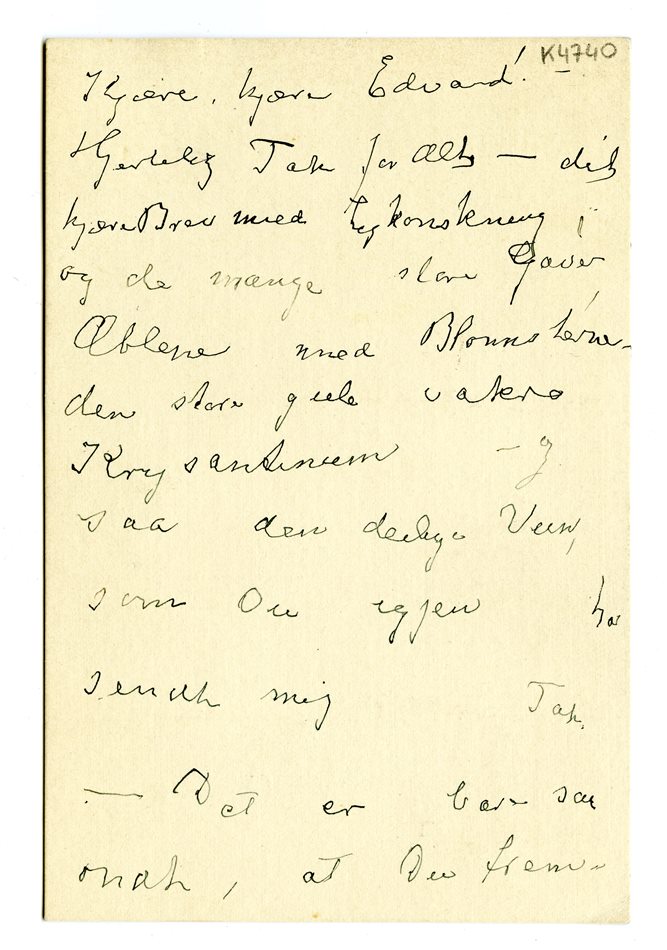 K4740
Kjære, kjære Edvard! –
Hjertelig Tak for Alt – dit
kjære Brev med Lykønskning,
og de mange store Gaver
Æblene med Blomsterne –
den store gule vakre
Krysantimum – og
saa den deilige Vin,
som Du igjen har
sendt mig Tak.
– Det er bare saa
ondt, at Du frem-